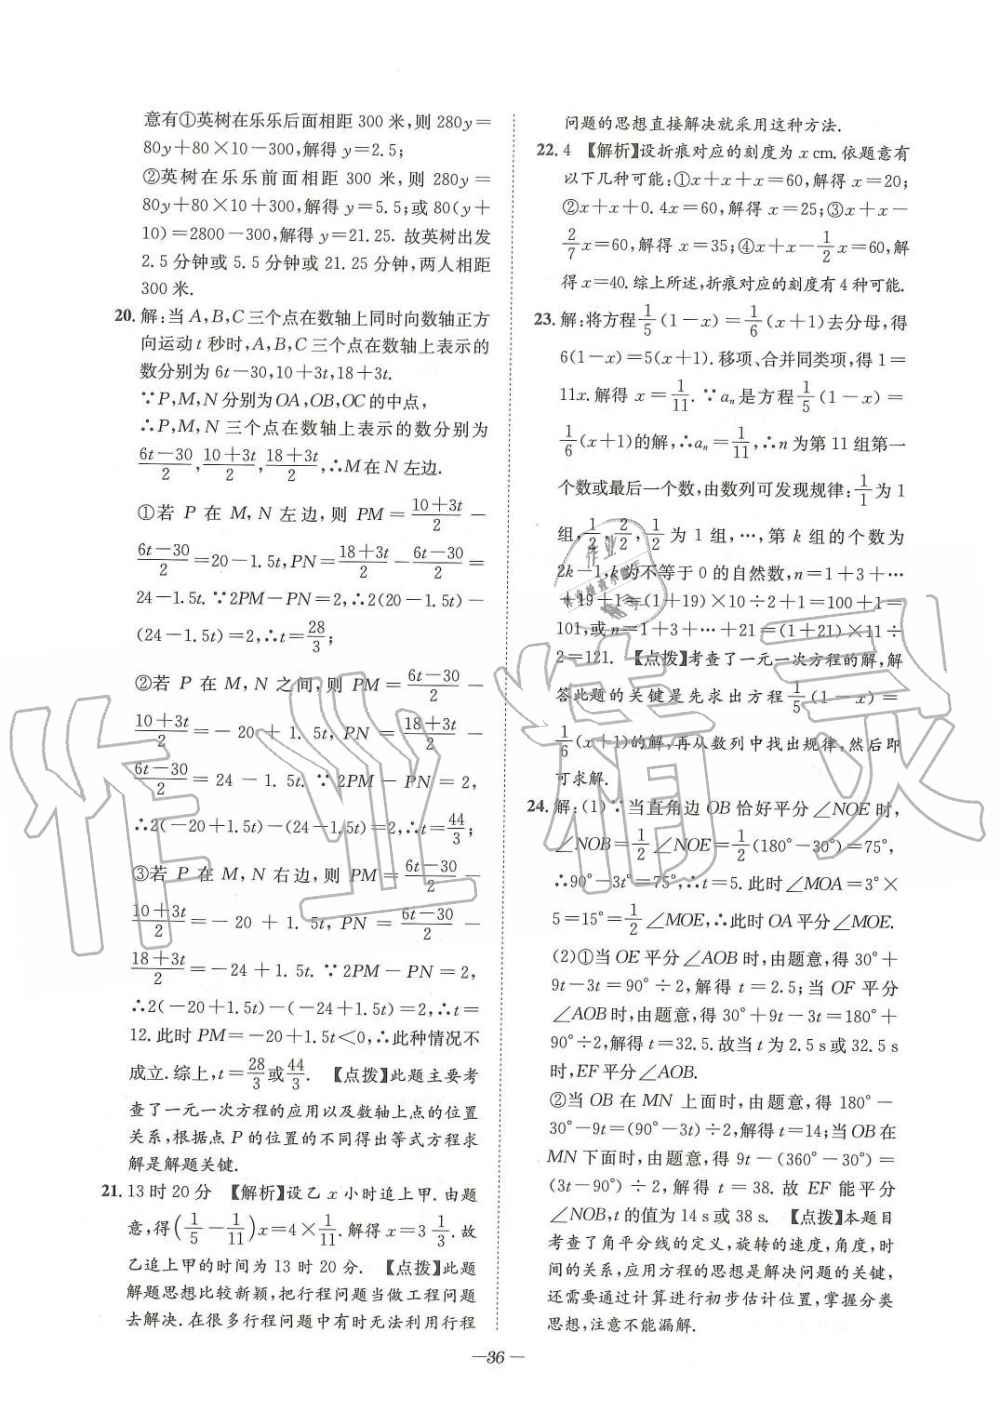 意有①英树在乐乐后面相距 300 米,则 280y=
80y+80×10-300,解得 y=2.5;
②英树在乐乐前面相距 300 米,则 280y=
80y+80×10+300,解得 y=5.5;或 80(y+
10)=2800-300,解得 y=21.25. 故英树出发
2.5 分钟或 5.5 分钟或 21.25 分钟,两人相距
300 米.
20. 解:当 A,B,C 三个点在数轴上同时向数轴正方
向运动 t 秒时,A,B,C 三个点在数轴上表示的
数分别为 6t-30,10+3t,18+3t.
∵P,M,N 分别为 OA,OB,OC 的中点,
∴P,M,N 三个点在数轴上表示的数分别为
(6t-30)/2,(10+3t)/2,(18+3t)/2,∴M 在 N 左边.
①若 P 在 M,N 左边,则 PM=(10+3t)/2-
(6t-30)/2=20-1.5t,PN=(18+3t)/2-(6t-30)/2=
24-1.5t. ∵2PM-PN=2,∴2(20-1.5t)
-(24-1.5t)=2,∴t=28/3;
②若 P 在 M,N 之间,则 PM=(6t-30)/2-
(10+3t)/2=-20+1.5t,PN=(18+3t)/2-
(6t-30)/2=24-1.5t. ∵2PM-PN=2,
∴2(-20+1.5t)-(24-1.5t)=2,∴t=44/3;
③若 P 在 M,N 右边,则 PM=(6t-30)/2-
(10+3t)/2=-20+1.5t,PN=(6t-30)/2-
(18+3t)/2=-24+1.5t. ∵2PM-PN=2,
∴2(-20+1.5t)-(-24+1.5t)=2,∴t=
12. 此时 PM=-20+1.5t<0,∴此种情况不
成立. 综上,t=28/3或44/3. 【点拨】此题主要考
查了一元一次方程的应用以及数轴上点的位置
关系,根据点 P 的位置的不同得出等式方程求
解是解题关键.
21. 13 时 20 分 【解析】设乙 x 小时追上甲. 由题
意,得(1/5-1/11)x=4×1/11. 解得 x=3 1/3. 故
乙追上甲的时间为 13 时 20 分. 【点拨】此题
解题思想比较新颖,把行程问题当做工程问题
去解决. 在很多行程问题中有时无法利用行程
问题的思想直接解决就采用这种方法.
22. 4 【解析】设折痕对应的刻度为 x cm. 依题意有
以下几种可能:①x+x+x=60,解得 x=20;
②x+x+0.4x=60,解得 x=25;③x+x-
2/7x=60,解得 x=35;④x+x-1/2x=60,解
得 x=40. 综上所述,折痕对应的刻度有 4 种可能.
23. 解:将方程1/5(1-x)=1/6(x+1)去分母,得
6(1-x)=5(x+1). 移项、合并同类项,得 1=
11x. 解得 x=1/11. ∵aₙ是方程1/5(1-x)=
1/6(x+1)的解,∴aₙ=1/11,∴n 为第 11 组第一
个数或最后一个数,由数列可发现规律:1/1为 1
组,1/2,2/2,1/2为 1 组,…,第 k 组的个数为
2k-1,k 为不等于 0 的自然数,n=1+3+…
+19+1=(1+19)×10÷2+1=100+1=
101,或 n=1+3+…+21=(1+21)×11÷
2=121. 【点拨】考查了一元一次方程的解,解
答此题的关键是先求出方程1/5(1-x)=
1/6(x+1)的解,再从数列中找出规律,然后即
可求解.
24. 解:(1)∵当直角边 OB 恰好平分∠NOE 时,
∠NOB=1/2∠NOE=1/2(180°-30°)=75°,
∴90°-3t°=75°,∴t=5. 此时∠MOA=3°×
5=15°=1/2∠MOE,∴此时 OA 平分∠MOE.
(2)①当 OE 平分∠AOB 时,由题意,得 30°+
9t-3t=90°÷2,解得 t=2.5;当 OF 平分
∠AOB 时,由题意,得 30°+9t-3t=180°+
90°÷2,解得 t=32.5. 故当 t 为 2.5 s或 32.5 s
时,EF 平分∠AOB.
②当 OB 在 MN 上面时,由题意,得 180°-
30°-9t=(90°-3t)÷2,解得 t=14;当 OB 在
MN 下面时,由题意,得 9t-(360°-30°)=
(3t-90°)÷2,解得 t=38. 故 EF 能平分
∠NOB,t 的值为 14 s或 38 s. 【点拨】本题目
考查了角平分线的定义,旋转的速度,角度,时
间的关系,应用方程的思想是解决问题的关键,
还需要通过计算进行初步估计位置,掌握分类
思想,注意不能漏解.
—36—
作业精灵